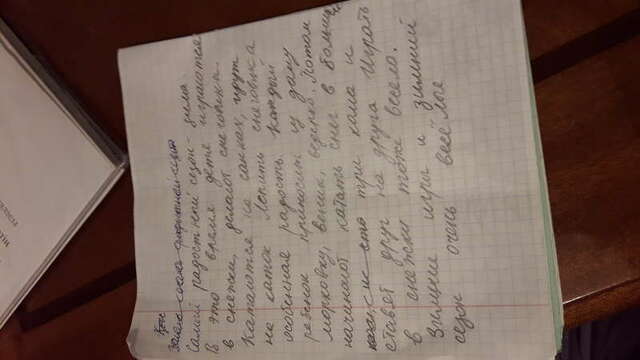 Самый радостный сезон - зима.
В это время дети играются
в снежки, делают снеговики.
Катаются на санках, идут
на каток Лепить снеговика
особенная радость. Каждый
ребенок приносит из дому
морковку, веник, ведерко. Потом
начинают катать снег в большие
три кома и
ставят друг на друга Играть
в снежки тоже весело.
Зимние игры и зимний
сезон очень весёлые